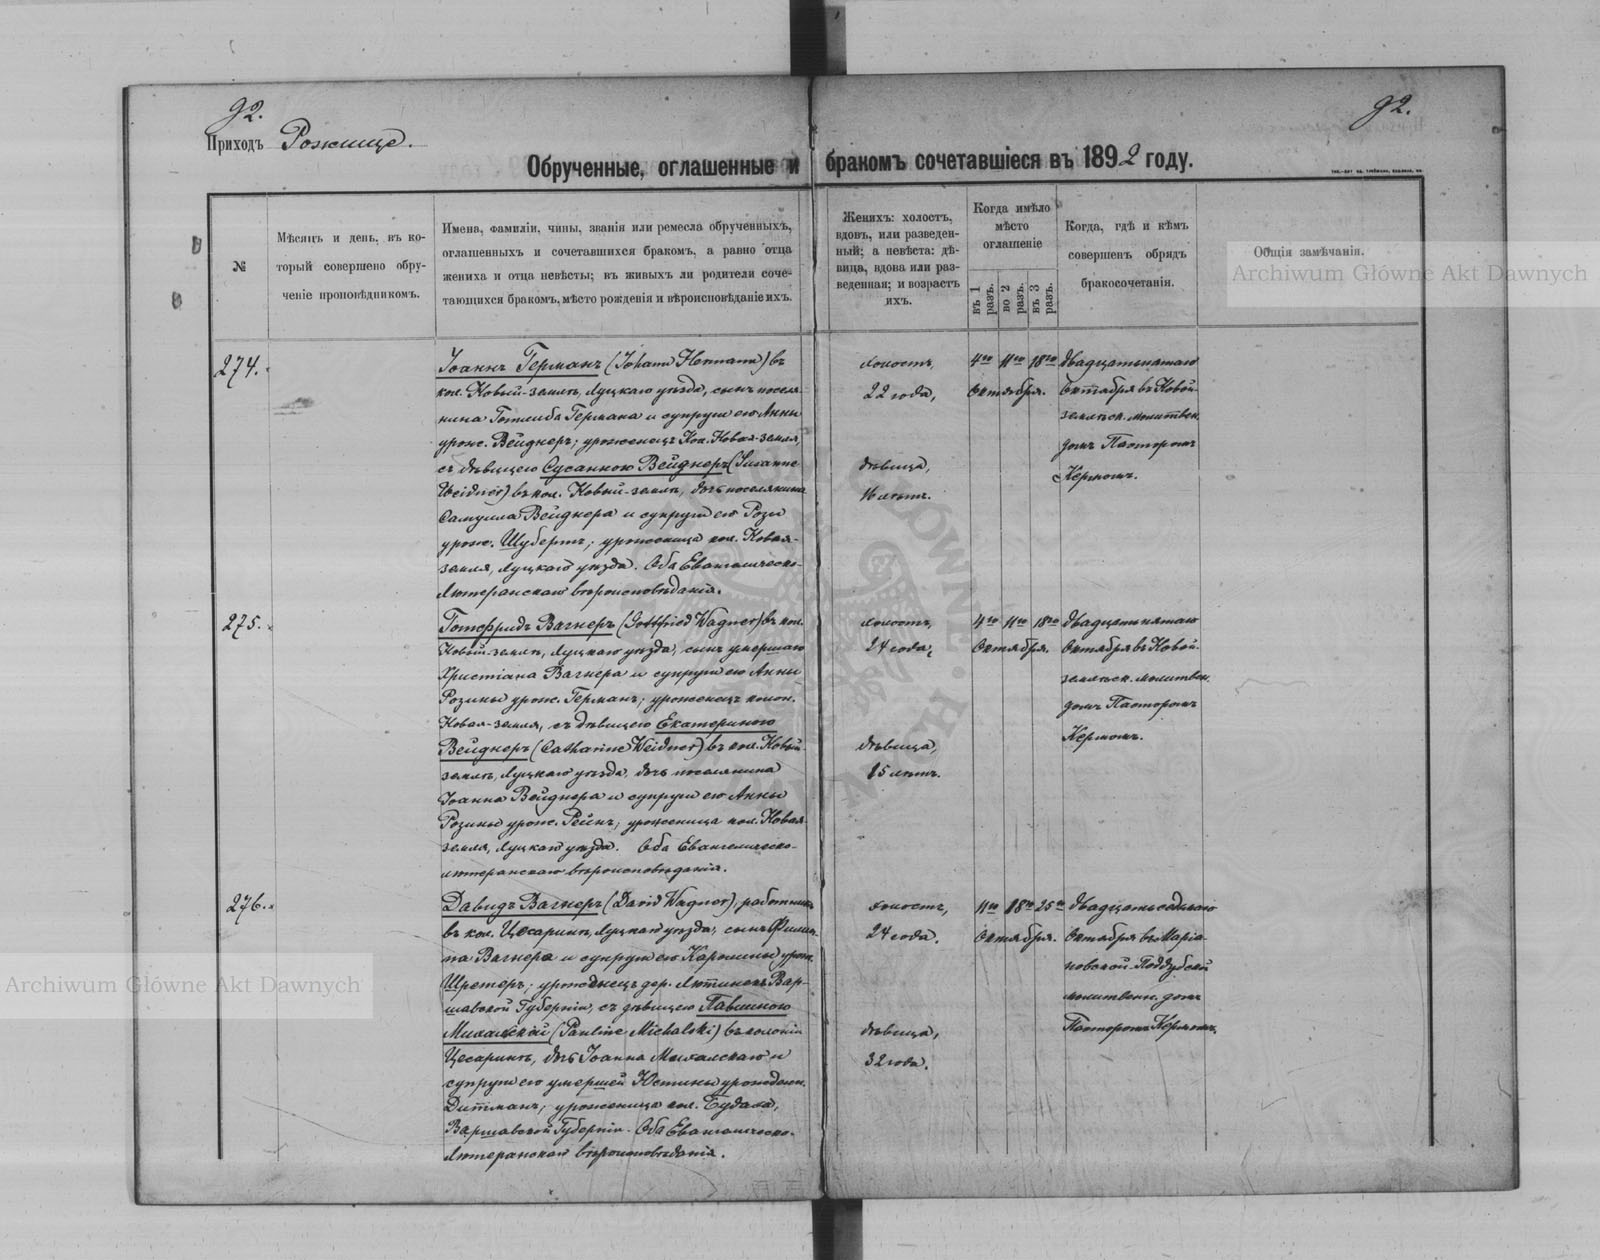 92.
92.
Приходъ Рожище.
Обрученные, оглашенные и бракомъ сочетавшіеся въ 1892 году.
№
Мѣсяцъ и день, въ ко-
торый совершено обру-
ченіе проповѣдникомъ.
Имена, фамиліи, чины, званія или ремесла обрученныхъ,
оглашенныхъ и сочетавшихся бракомъ, а равно отца
жениха и отца невѣсты; въ живыхъ ли родители соче-
тающихся бракомъ, мѣсто рожденія и вѣроисповѣданіе ихъ.
Женихъ: холостъ,
вдовъ, или разведен-
ный; а невѣста: дѣ-
вица, вдова или раз-
веденная; и возрастъ
ихъ.
Когда имѣло
мѣсто
оглашеніе
въ 1 разъ.
во 2 разъ.
въ 3 разъ.
Когда, гдѣ и кѣмъ
совершенъ обрядъ
бракосочетанія.
Общія замѣчанія.
Archiwum Główne Akt Dawnych
274.
Іоаннъ Германъ (Johann Hermann) въ
кол. Новый-землѣ, Луцкаго уѣзда, сынъ поселя-
нина Готлиба Германа и супруги его Анны
урож. Вейднеръ; уроженецъ кол. Новая-земля,
съ дѣвицею Сусанною Вейднеръ (Susanne
Weidner) въ кол. Новый-землѣ, дочь поселянина
Самуила Вейднера и супруги его Розы
урож. Шубертъ; уроженица кол. Новая-
земля, Луцкаго уѣзда. Оба Евангелическо-
Лютеранскаго вѣроисповѣданія.
холостъ,
22 года,
дѣвица,
16 лѣтъ.
4го 11го 18го
Октября.
двадцатьпятаго
Октября въ Новой-
земльск. молитвен.
домѣ Пасторомъ
Кермомъ.
275.
Готфридъ Вагнеръ (Gottfried Wagner) въ кол.
Новый-землѣ, Луцкаго уѣзда, сынъ умершаго
Христіана Вагнера и супруги его Анны
Розины урож. Германъ; уроженецъ колон.
Новая-земля, съ дѣвицею Екатериною
Вейднеръ (Catharine Weidner) въ кол. Новый-
землѣ, Луцкаго уѣзда, дочь поселянина
Іоанна Вейднера и супруги его Анны
Розины урож. Рейнъ; уроженица кол. Новая-
земля, Луцкаго уѣзда. Оба Евангелическо-
лютеранскаго вѣроисповѣданія.
холостъ,
24 года,
дѣвица,
25 лѣтъ.
4го 11го 18го
Октября.
двадцатьпятаго
Октября въ Новой-
земльск. молитвен.
домѣ Пасторомъ
Кермомъ.
276.
Давидъ Вагнеръ (David Wagner), работникъ
въ кол. Цесаринъ, Луцкаго уѣзда, сынъ Филип-
па Вагнера и супруги его Каролины урож.
Шретеръ; уроженецъ дер. Вар-
шавской Губерніи, съ дѣвицею Павлиною
Михальской (Pauline Michalski) въ колоніи
Цесаринъ, дочь Іоанна Михалскаго и
супруги его умершей Юстины урожден.
Дитманъ; уроженица кол. Будама,
Варшавской Губерніи. Оба Евангелическо-
Лютеранскаго вѣроисповѣданія.
холостъ,
24 года.
дѣвица,
32 года.
11го 18го 25го
Октября.
двадцатьседьмаго
Октября въ Марья-
новской-Поддубской
молитвен. домѣ
Пасторомъ Кермомъ.
Archiwum Główne Akt Dawnych